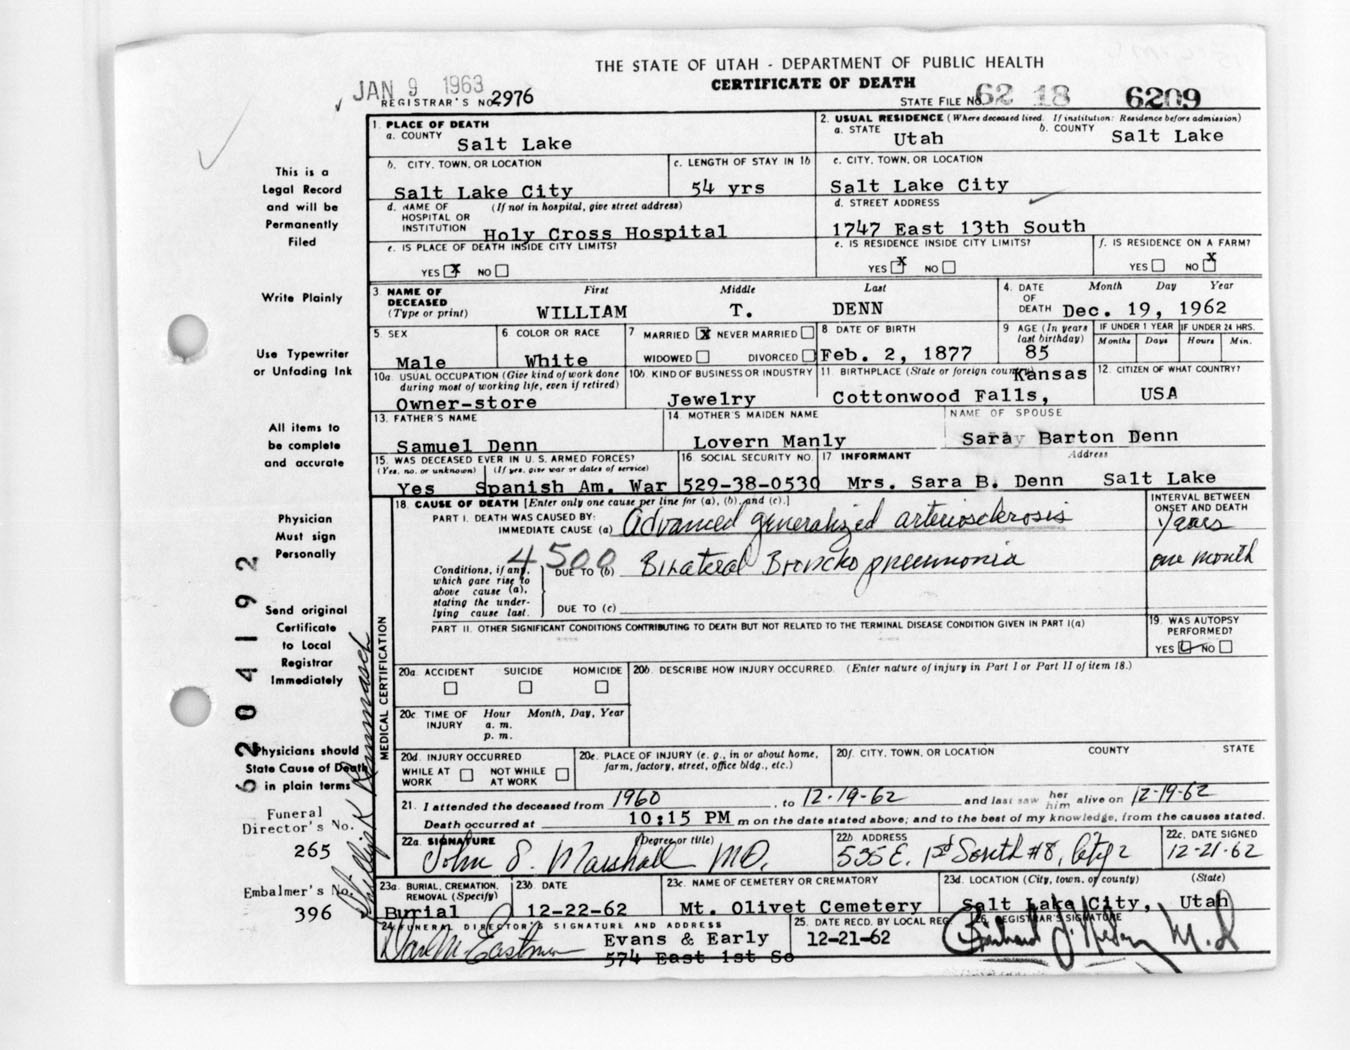 THE STATE OF UTAH - DEPARTMENT OF PUBLIC HEALTH
CERTIFICATE OF DEATH
JAN 9 1963
REGISTRAR'S NO. 2976
STATE FILE NO. 62 18 6209
This is a
Legal Record
and will be
Permanently
Filed
Write Plainly
Use Typewriter
or Unfading Ink
All items to
be complete
and accurate
Physician
Must sign
Personally
Send original
Certificate
to Local
Registrar
Immediately
Physicians should
State Cause of Death
in plain terms
Funeral
Director's No.
265
Embalmer's No.
396
6204192
1. PLACE OF DEATH
a. COUNTY
Salt Lake
2. USUAL RESIDENCE (Where deceased lived. If institution: Residence before admission)
a. STATE Utah b. COUNTY Salt Lake
b. CITY, TOWN, OR LOCATION
Salt Lake City
c. LENGTH OF STAY IN 1b
54 yrs
c. CITY, TOWN, OR LOCATION
Salt Lake City
d. NAME OF HOSPITAL OR INSTITUTION (If not in hospital, give street address)
Holy Cross Hospital
d. STREET ADDRESS
1747 East 13th South
e. IS PLACE OF DEATH INSIDE CITY LIMITS?
YES X NO
e. IS RESIDENCE INSIDE CITY LIMITS?
YES X NO
f. IS RESIDENCE ON A FARM?
YES NO X
3 NAME OF DECEASED (Type or print)
First Middle Last
WILLIAM T. DENN
4. DATE OF DEATH Month Day Year
Dec. 19, 1962
5 SEX
Male
6 COLOR OR RACE
White
7 MARRIED X NEVER MARRIED
WIDOWED DIVORCED
8 DATE OF BIRTH
Feb. 2, 1877
9 AGE (In years last birthday)
85
IF UNDER 1 YEAR
Months Days
IF UNDER 24 HRS.
Hours Min.
10a. USUAL OCCUPATION (Give kind of work done during most of working life, even if retired)
Owner-store
10b. KIND OF BUSINESS OR INDUSTRY
Jewelry
11 BIRTHPLACE (State or foreign country)
Cottonwood Falls, Kansas
12. CITIZEN OF WHAT COUNTRY?
USA
13. FATHER'S NAME
Samuel Denn
14. MOTHER'S MAIDEN NAME
Lovern Manly
NAME OF SPOUSE
Sara Barton Denn
15. WAS DECEASED EVER IN U. S. ARMED FORCES?
(Yes, no, or unknown) (If yes, give war or dates of service)
Yes Spanish Am. War
16 SOCIAL SECURITY NO.
529-38-0530
17 INFORMANT Address
Mrs. Sara B. Denn Salt Lake
MEDICAL CERTIFICATION
18. CAUSE OF DEATH [Enter only one cause per line for (a), (b), and (c).]
INTERVAL BETWEEN ONSET AND DEATH
PART I. DEATH WAS CAUSED BY:
IMMEDIATE CAUSE (a) Advanced generalized arteriosclerosis years
4500
Conditions, if any, which gave rise to above cause (a), stating the under-lying cause last.
DUE TO (b) Bilateral Broncho pneumonia one month
DUE TO (c)
PART II. OTHER SIGNIFICANT CONDITIONS CONTRIBUTING TO DEATH BUT NOT RELATED TO THE TERMINAL DISEASE CONDITION GIVEN IN PART I(a)
19. WAS AUTOPSY PERFORMED?
YES NO
20a. ACCIDENT SUICIDE HOMICIDE
20b. DESCRIBE HOW INJURY OCCURRED. (Enter nature of injury in Part I or Part II of item 18.)
20c. TIME OF INJURY Hour Month, Day, Year
a. m.
p. m.
20d. INJURY OCCURRED
WHILE AT WORK NOT WHILE AT WORK
20e. PLACE OF INJURY (e. g., in or about home, farm, factory, street, office bldg., etc.)
20f. CITY, TOWN, OR LOCATION COUNTY STATE
21. I attended the deceased from 1960, to 12-19-62 and last saw her him alive on 12-19-62
Death occurred at 10:15 PM m on the date stated above; and to the best of my knowledge, from the causes stated.
22a. SIGNATURE (Degree or title)
John S. Marshall MD.
22b ADDRESS
535 E. 1st South #8, City 2
22c. DATE SIGNED
12-21-62
23a. BURIAL, CREMATION, REMOVAL (Specify)
Burial
23b. DATE
12-22-62
23c. NAME OF CEMETERY OR CREMATORY
Mt. Olivet Cemetery
23d. LOCATION (City, town, or county) (State)
Salt Lake City, Utah
24 FUNERAL DIRECTOR'S SIGNATURE AND ADDRESS
Evans & Early
574 East 1st So
25. DATE RECD. BY LOCAL REG.
12-21-62
26. REGISTRAR'S SIGNATURE